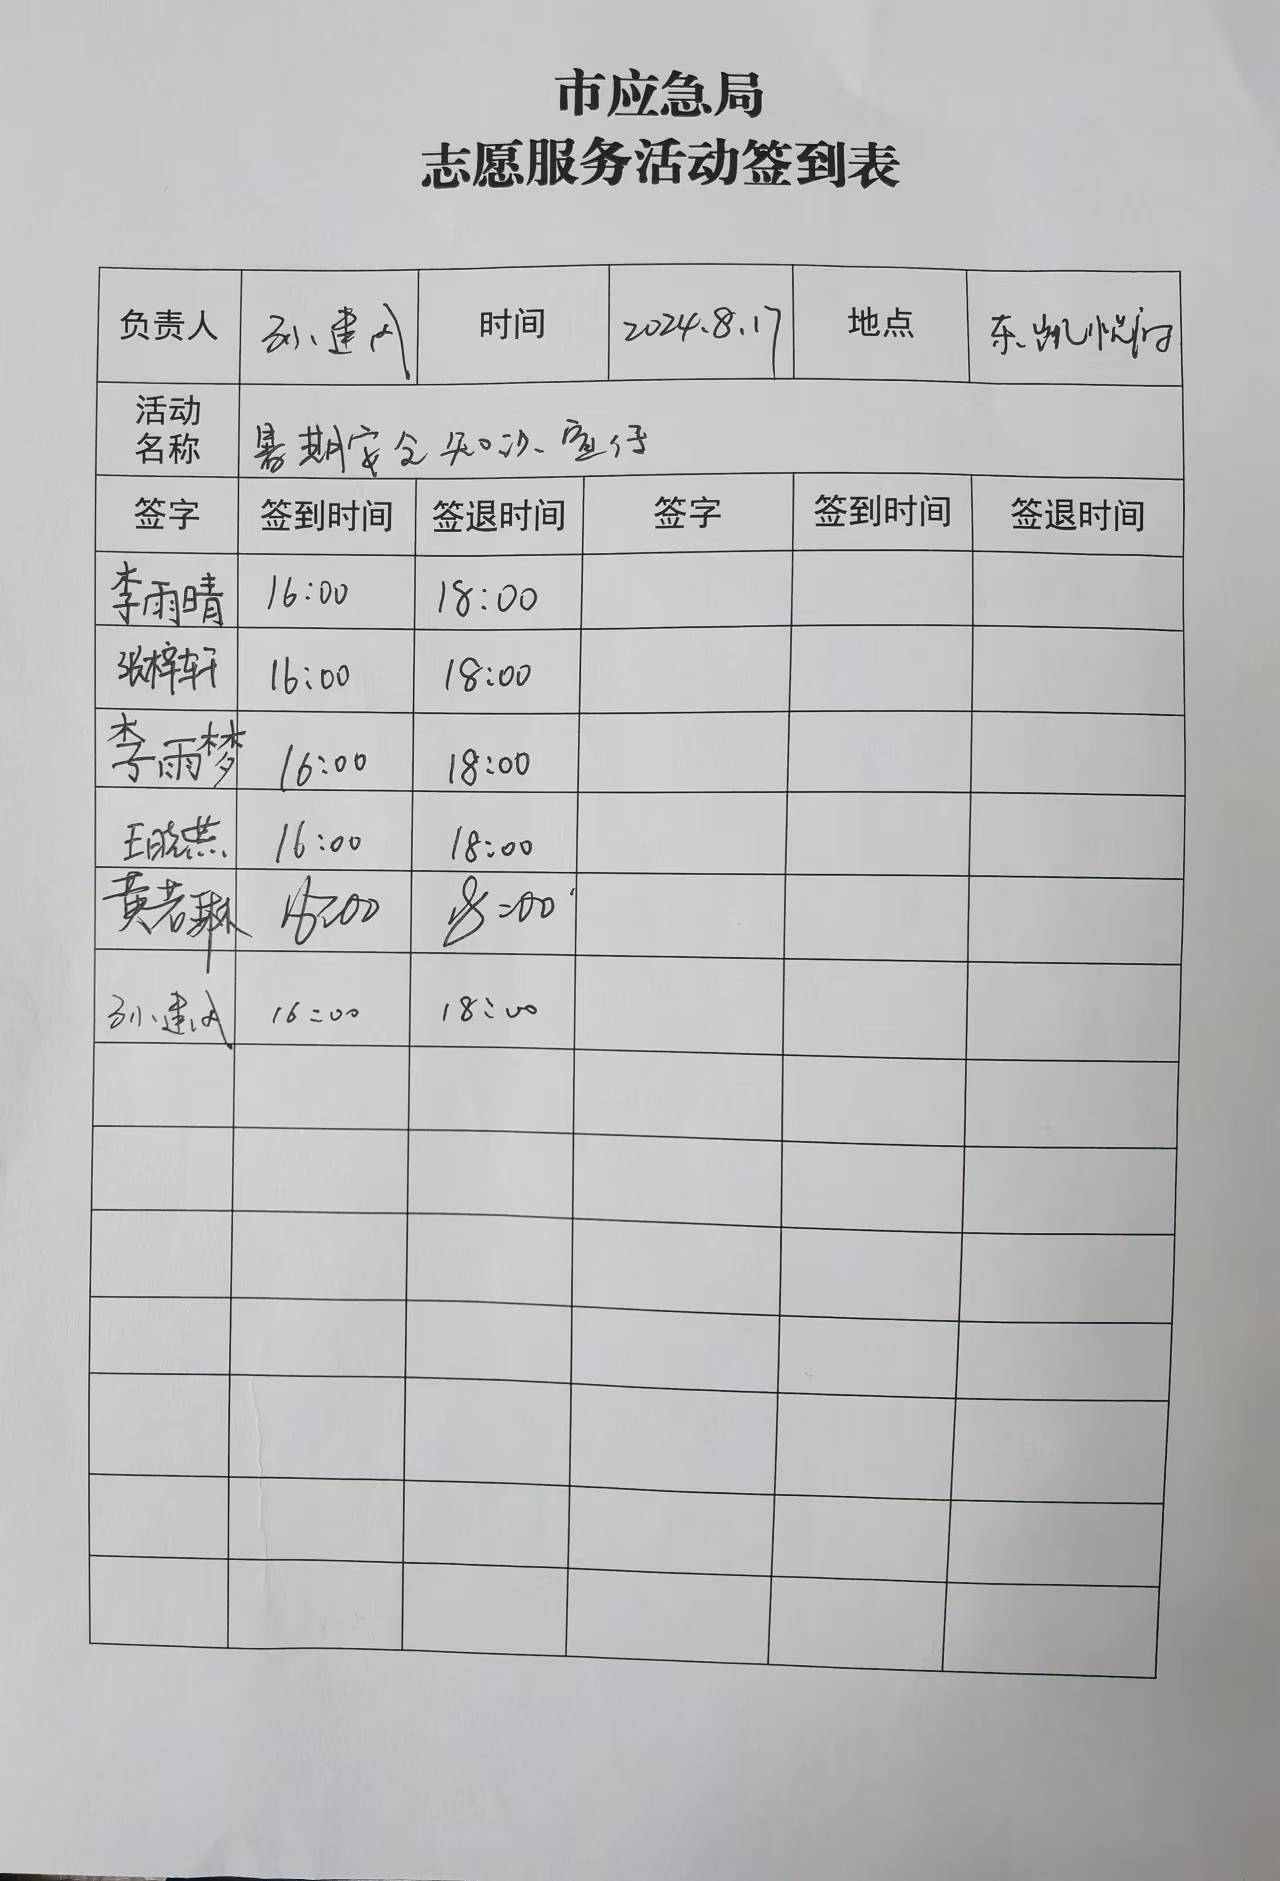 市应急局
志愿服务活动签到表
负责人 孙建成 时间 2024.8.17 地点 东凯悦府
活动名称 暑期安全知识宣传
签字 签到时间 签退时间 签字 签到时间 签退时间
李雨晴 16:00 18:00
张梓轩 16:00 18:00
李雨梦 16:00 18:00
王晓燕 16:00 18:00
黄若琳 16:00 18:00
孙建成 16:00 18:00